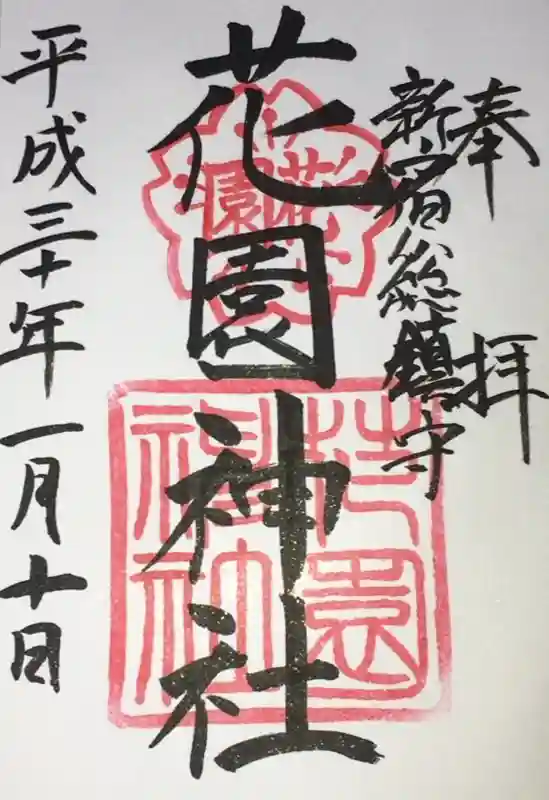 奉拝
新宿総鎮守
花園神社
花園
花園神社
平成三十年一月十日